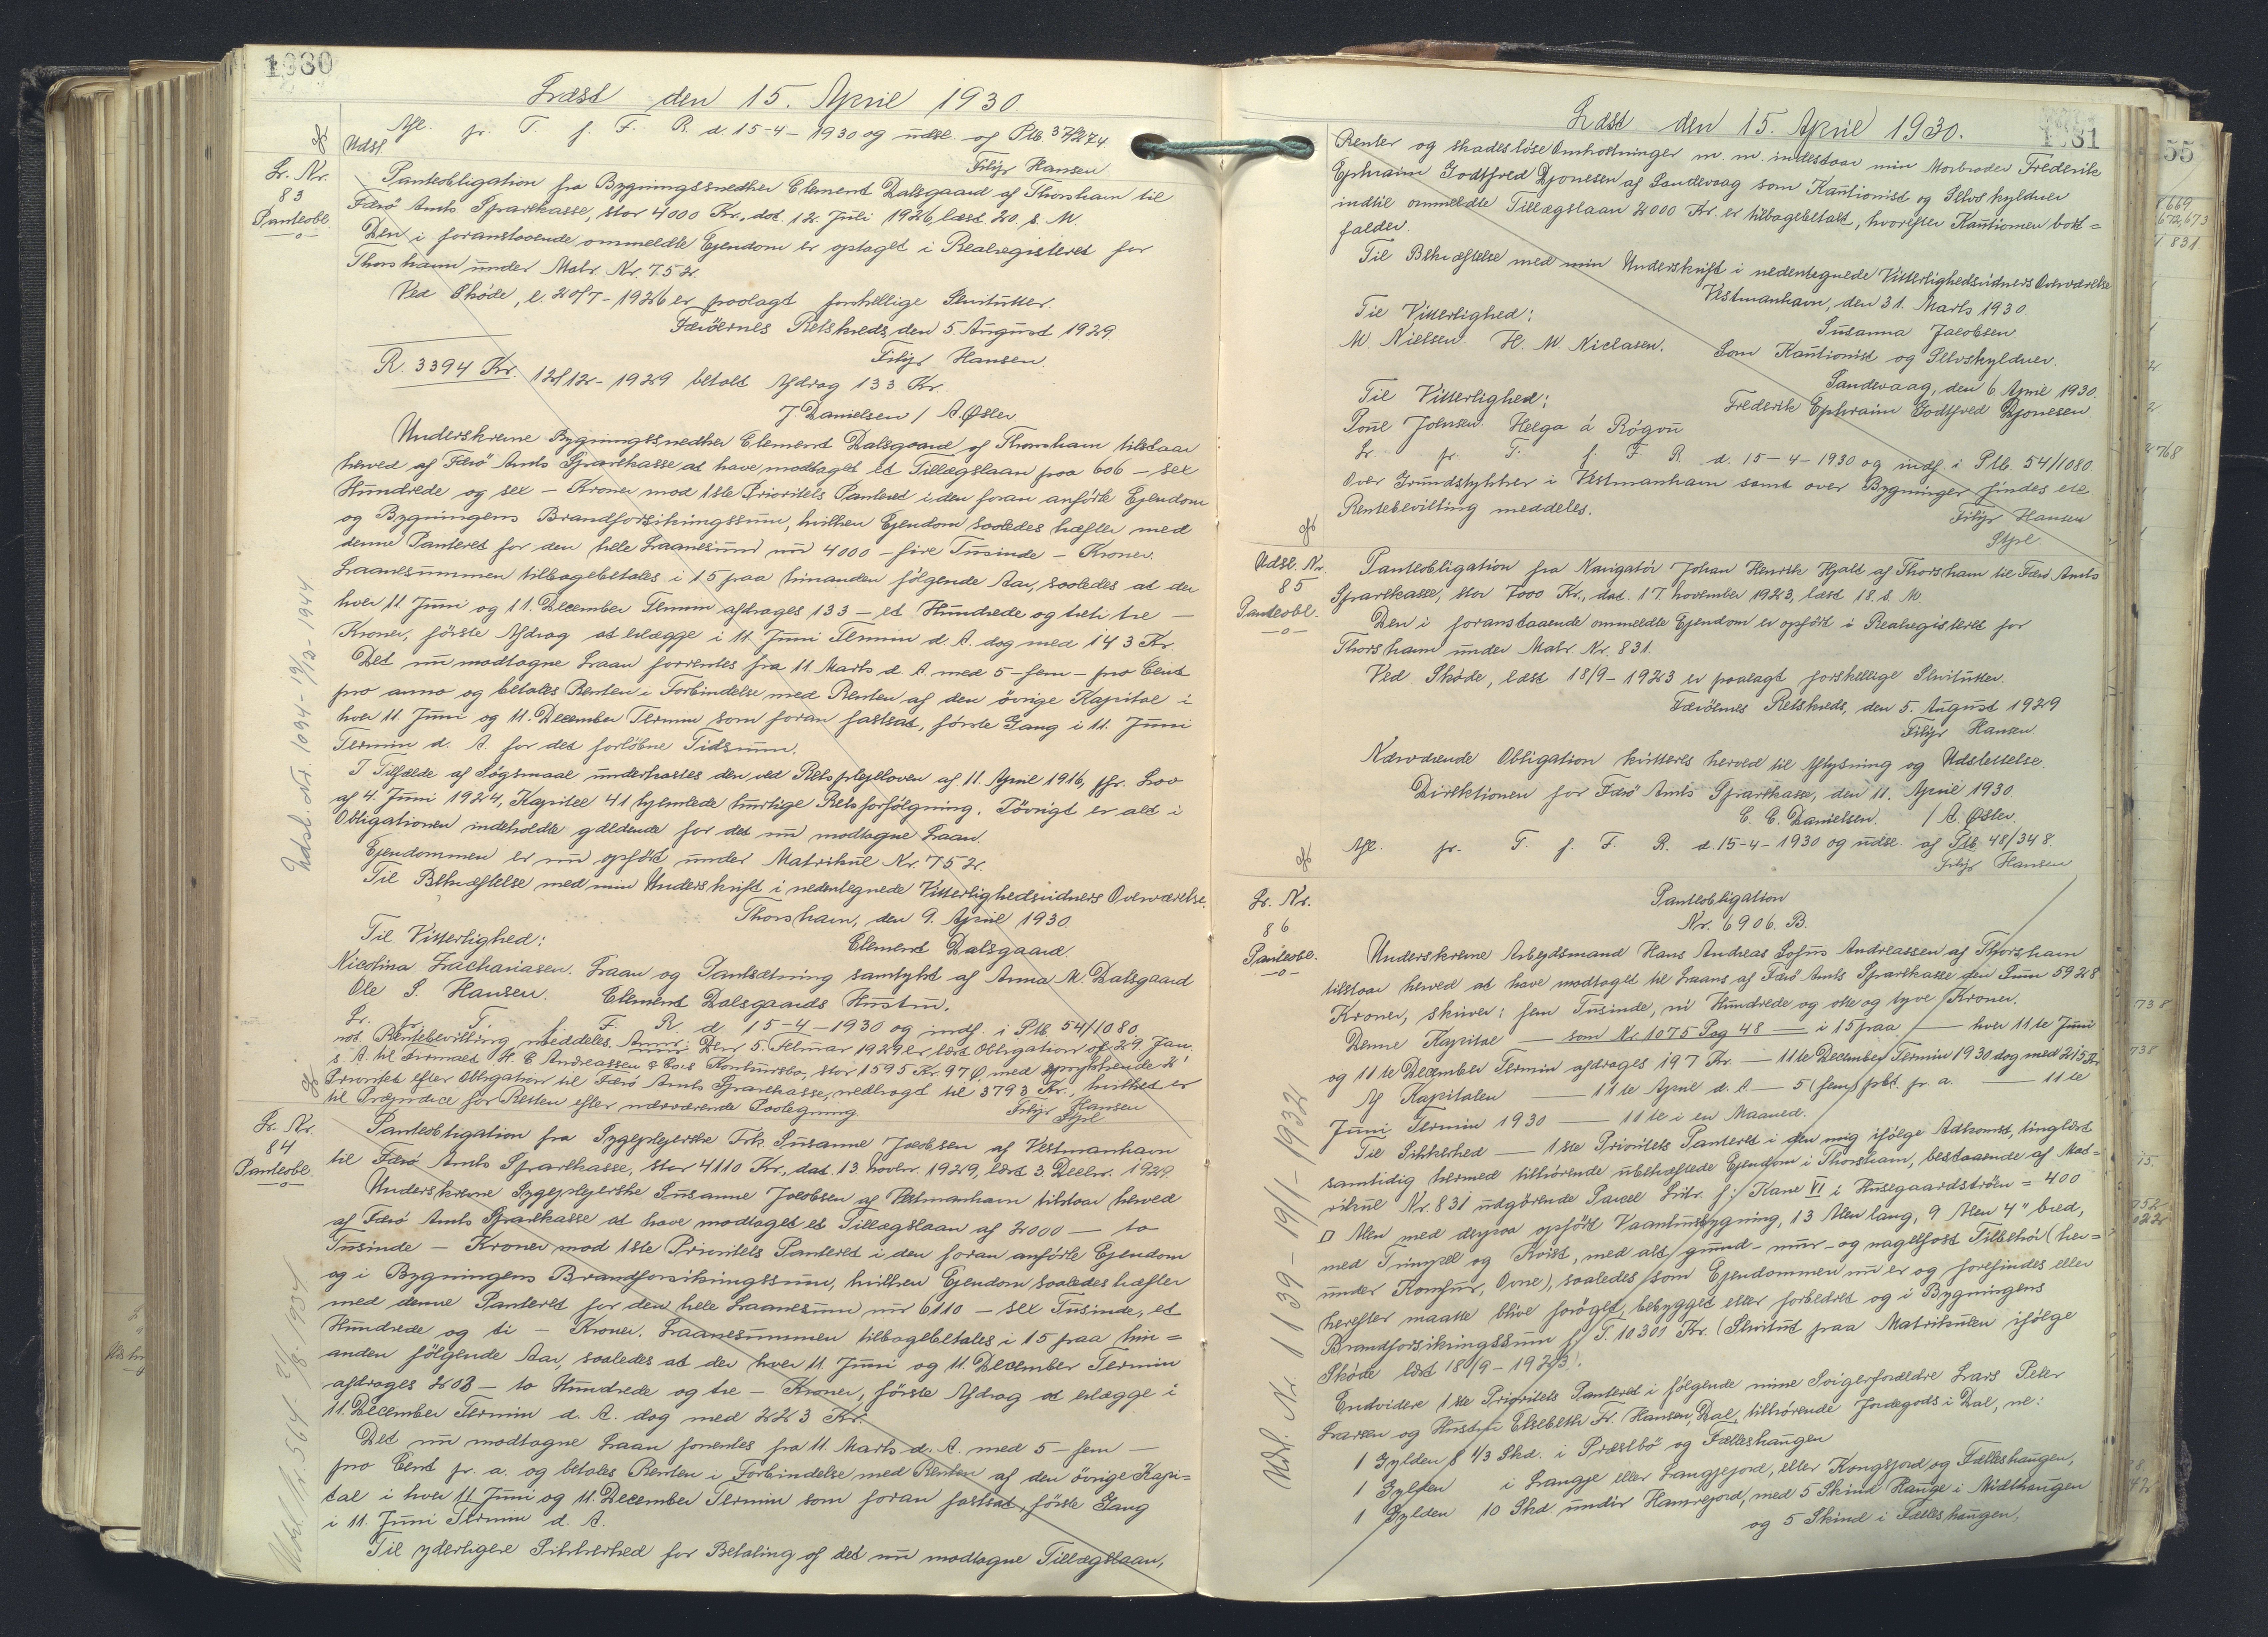 1080
Læst den 15. April 1930
Afl. pr. T. f. F. R. d. 15-4-1930 og udsl. af Ptb. 37/274.
Udsl.
Filip Hansen
Lr. Nr.
83
Panteobl.
Panteobligation fra Bygningssnedker Clement Dalsgaard af Thorshavn til
Færö Amts Sparekasse, stor 4000 Kr., dat. 12. Juli 1926, læst 20. s. M.
Den i foranstaaende ommeldte Ejendom er optaget i Realregisteret for
Thorshavn under Matr. Nr. 752.
Ved Skøde, l. 20/7-1926 er paalagt forskellige Servitutter.
Færöernes Retskreds, den 5. August 1929
Filip Hansen.
R. 3394 Kr. 12/12-1929 betalt Afdrag 133 Kr.
J. Danielsen / A. Øster
Underskrevne Bygningssnedker Clement Dalsgaard af Thorshavn tilstaar
herved af Færö Amts Sparekasse at have modtaget et Tillægslaan paa 606 - sex
Hundrede og sex - Kroner mod 1ste Prioritets Panteret i den foran anförte Ejendom
og Bygningens Brandforsikringssum, hvilken Ejendom saaledes hæfter med
denne Panteret for den hele Laanesum nu 4000 - fire Tusinde - Kroner.
Laanesummen tilbagebetales i 15 paa hinanden fölgende Aar, saaledes at der
hver 11. Juni og 11. December Termin afdrages 133 - et Hundrede og treti tre -
Kroner, förste Afdrag at erlægge i 11. Juni Termin d. A. dog med 143 Kr.
Det nu modtagne Laan forrentes fra 11. Marts d. A. med 5 - fem - pro Cent
pro anno og betales Renten i Forbindelse med Renten af den övrige Kapital i
hver 11. Juni og 11. December Termin som foran fastsat, förste Gang i 11. Juni
Termin d. A. for det forlöbne Tidsrum.
I Tilfælde af Sögsmaal underkastes den ved Retsplejeloven af 11. April 1916, jfr. Lov
af 4. Juni 1924, Kapitel 41 hjemlede hurtige Retsforfölgning. Iövrigt er alt i
Obligationen indeholdte gældende for det nu modtagne Laan.
Ejendommen er nu opfört under Matrikul Nr. 752.
Til Bekræftelse med min Underskrift i nedentegnede Vitterlighedsvidners Overværelse.
Thorshavn, den 9. April 1930.
Til Vitterlighed: Clement Dalsgaard.
Nicolina Zachariasen. Laan og Pantsætning samtykt af Anna M. Dalsgaard
Ole S. Hansen. Clement Dalsgaards Hustru.
Lr. pr. T. f. F. R. d. 15-4-1930 og indf. i Ptb. 54/1080.
not. Rentebevilling meddeles. Anm: Den 5. Februar 1929 er læst Obligation af 29. Jan.
s. A. til Firmaet H. C. Andreassen & Co's Konkursbo, stor 1595 Kr. 97 Ø. med oprykkende 2'
Prioritet efter Obligation til Færö Amts Sparekasse, nedbragt til 3793 Kr., hvilket er
til Præjudice for Retten efter nærværende Paategning.
Filip Hansen
Stpl.
Udsl. Nr. 1094 - 19/12-1944
Lr. Nr.
84
Panteobl.
Panteobligation fra Sygeplejerske Frk. Susanne Jacobsen af Vestmanhavn
til Færö Amts Sparekasse, stor 4110 Kr., dat. 13. Novbr. 1929, læst 3. Decbr. 1929.
Underskrevne Sygeplejerske Susanne Jacobsen af Vestmanhavn tilstaar herved
af Færö Amts Sparekasse at have modtaget et Tillægslaan af 2000 - to
Tusinde - Kroner mod 1ste Prioritets Panteret i den foran anförte Ejendom
og i Bygningens Brandforsikringssum, hvilken Ejendom saaledes hæfter
med denne Panteret for den hele Laanesum nu 6110 - sex Tusinde, et
Hundrede og ti - Kroner. Laanesummen tilbagebetales i 15 paa hin=
anden fölgende Aar, saaledes at der hver 11. Juni og 11. December Termin
afdrages 203 - to Hundrede og tre - Kroner, förste Afdrag at erlægge i
11. December Termin d. A. dog med 223 Kr.
Det nu modtagne Laan forrentes fra 11. Marts d. A. med 5 - fem -
pro Cent pr. a. og betales Renten i Forbindelse med Renten af den övrige Kapi=
tal i hver 11. Juni og 11. December Termin som foran fastsat, förste Gang
i 11. Juni Termin d. A.
Til yderligere Sikkerhed for Betaling af det nu modtagne Tillægslaan,
1081
Læst den 15. April 1930.
Renter og skadeslöse Omkostninger m. m. indestaar min Morbroder Frederik
Ephraim Godtfred Djonesen af Sandevaag som Kautionist og Selvskyldner
indtil ommeldte Tillægslaan 2000 Kr. er tilbagebetalt, hvorefter Kautionen bort=
falder.
Til Bekræftelse med min Underskrift i nedentegnede Vitterlighedsvidners Overværelse
Vestmanhavn, den 31. Marts 1930.
Til Vitterlighed: Susanna Jacobsen
M. Nielsen. H. M. Niclasen. Som Kautionist og Selvskyldner.
Sandevaag, den 6. April 1930.
Til Vitterlighed: Frederik Ephraim Godtfred Djonesen.
Poul Johnsen. Helga á Rógvu
Lr. pr. T. f. F. R. d. 15-4-1930 og indf. i Ptb. 54/1080.
Over Grundstykker i Vestmanhavn samt over Bygninger findes ete
Rentebevilling meddeles. Filip Hansen
Stpl.
Udsl. Nr.
85
Panteobl.
Panteobligation fra Navigatör Johan Henrik Hjalt af Thorshavn til Færö Amts
Sparekasse, stor 7000 Kr., dat. 17. November 1923, læst 18. s. M.
Den i foranstaaende ommeldte Ejendom er opfört i Realregisteret for
Thorshavn under Matr. Nr. 831.
Ved Skøde, læst 18/9-1923 er paalagt forskellige Servitutter.
Færöernes Retskreds, den 5. August 1929
Filip Hansen.
Nærværende Obligation kvitteres herved til Aflysning og Udslettelse.
Direktionen for Færö Amts Sparekasse, den 11. April 1930.
C. C. Danielsen. / A. Øster.
Afl. pr. T. f. F. R. d. 15-4-1930 og udsl. af Ptb. 48/348.
Filip Hansen
Lr. Nr.
86
Panteobl.
Panteobligation
Nr. 6906. B.
Underskrevne Arbejdsmand Hans Andreas Sofus Andreassen af Thorshavn
tilstaar herved at have modtaget til Laans af Færö Amts Sparekasse den Sum 5928
Kroner, skriver: fem Tusinde, ni Hundrede og otte og tyve Kroner.
Denne Kapital — som Nr 1075 Pag 48 — i 15 paa — hver 11te Juni
og 11te December Termin afdrages 197 Kr. — 11te December Termin 1930 dog med 215 Kr.
Af Kapitalen — 11te April d. A. — 5 (fem) pCt. pr. a. — 11te
Juni Termin 1930 — 11te i en Maaned.
Til Sikkerhed — 1ste Prioritets Panteret i den mig ifölge Adkomst, tinglæst
samtidig hermed tilhörende ubehæftede Ejendom i Thorshavn, bestaaende af Mat=
rikul Nr. 831 udgörende Parcel Litr. f: Kane VI i Husegaardströen = 400
□ Alen med derpaa opfört Vaaningsbygning, 13 Alen lang, 9 Alen 4" bred,
med Trempel og Kvist, med alt grund- mur- og nagelfast Tilbehör (her=
under Komfur, Ovne), saaledes som Ejendommen nu er og forefindes eller
herefter maatte blive foröget, bebygget eller forbedret og i Bygningens
Brandforsikringssum f. T. 10300 Kr. (Servitut paa Matrikulen ifölge
Skøde læst 18/9-1923).
Endvidere 1ste Prioritets Panteret i fölgende mine Svigerforældre Lars Peter
Larsen og Hustru Elsebeth Fr. Hansen, Dal, tilhørende Jordegods i Dal, ne:
1 Gylden 8 1/3 Skd. i Præstbö og Fælleshaugen
1 Gylden i Langje eller Langjejord, eller Kongsjord og Fælleshaugen,
1 Gylden 10 Skd. undir Hamrejord, med 5 Skind Hauge i Midthaugen
og 5 Skind i Fælleshaugen,
Udsl. Nr 1139 - 19/1-1932
55
669
672,673
831
768
738
738
75.